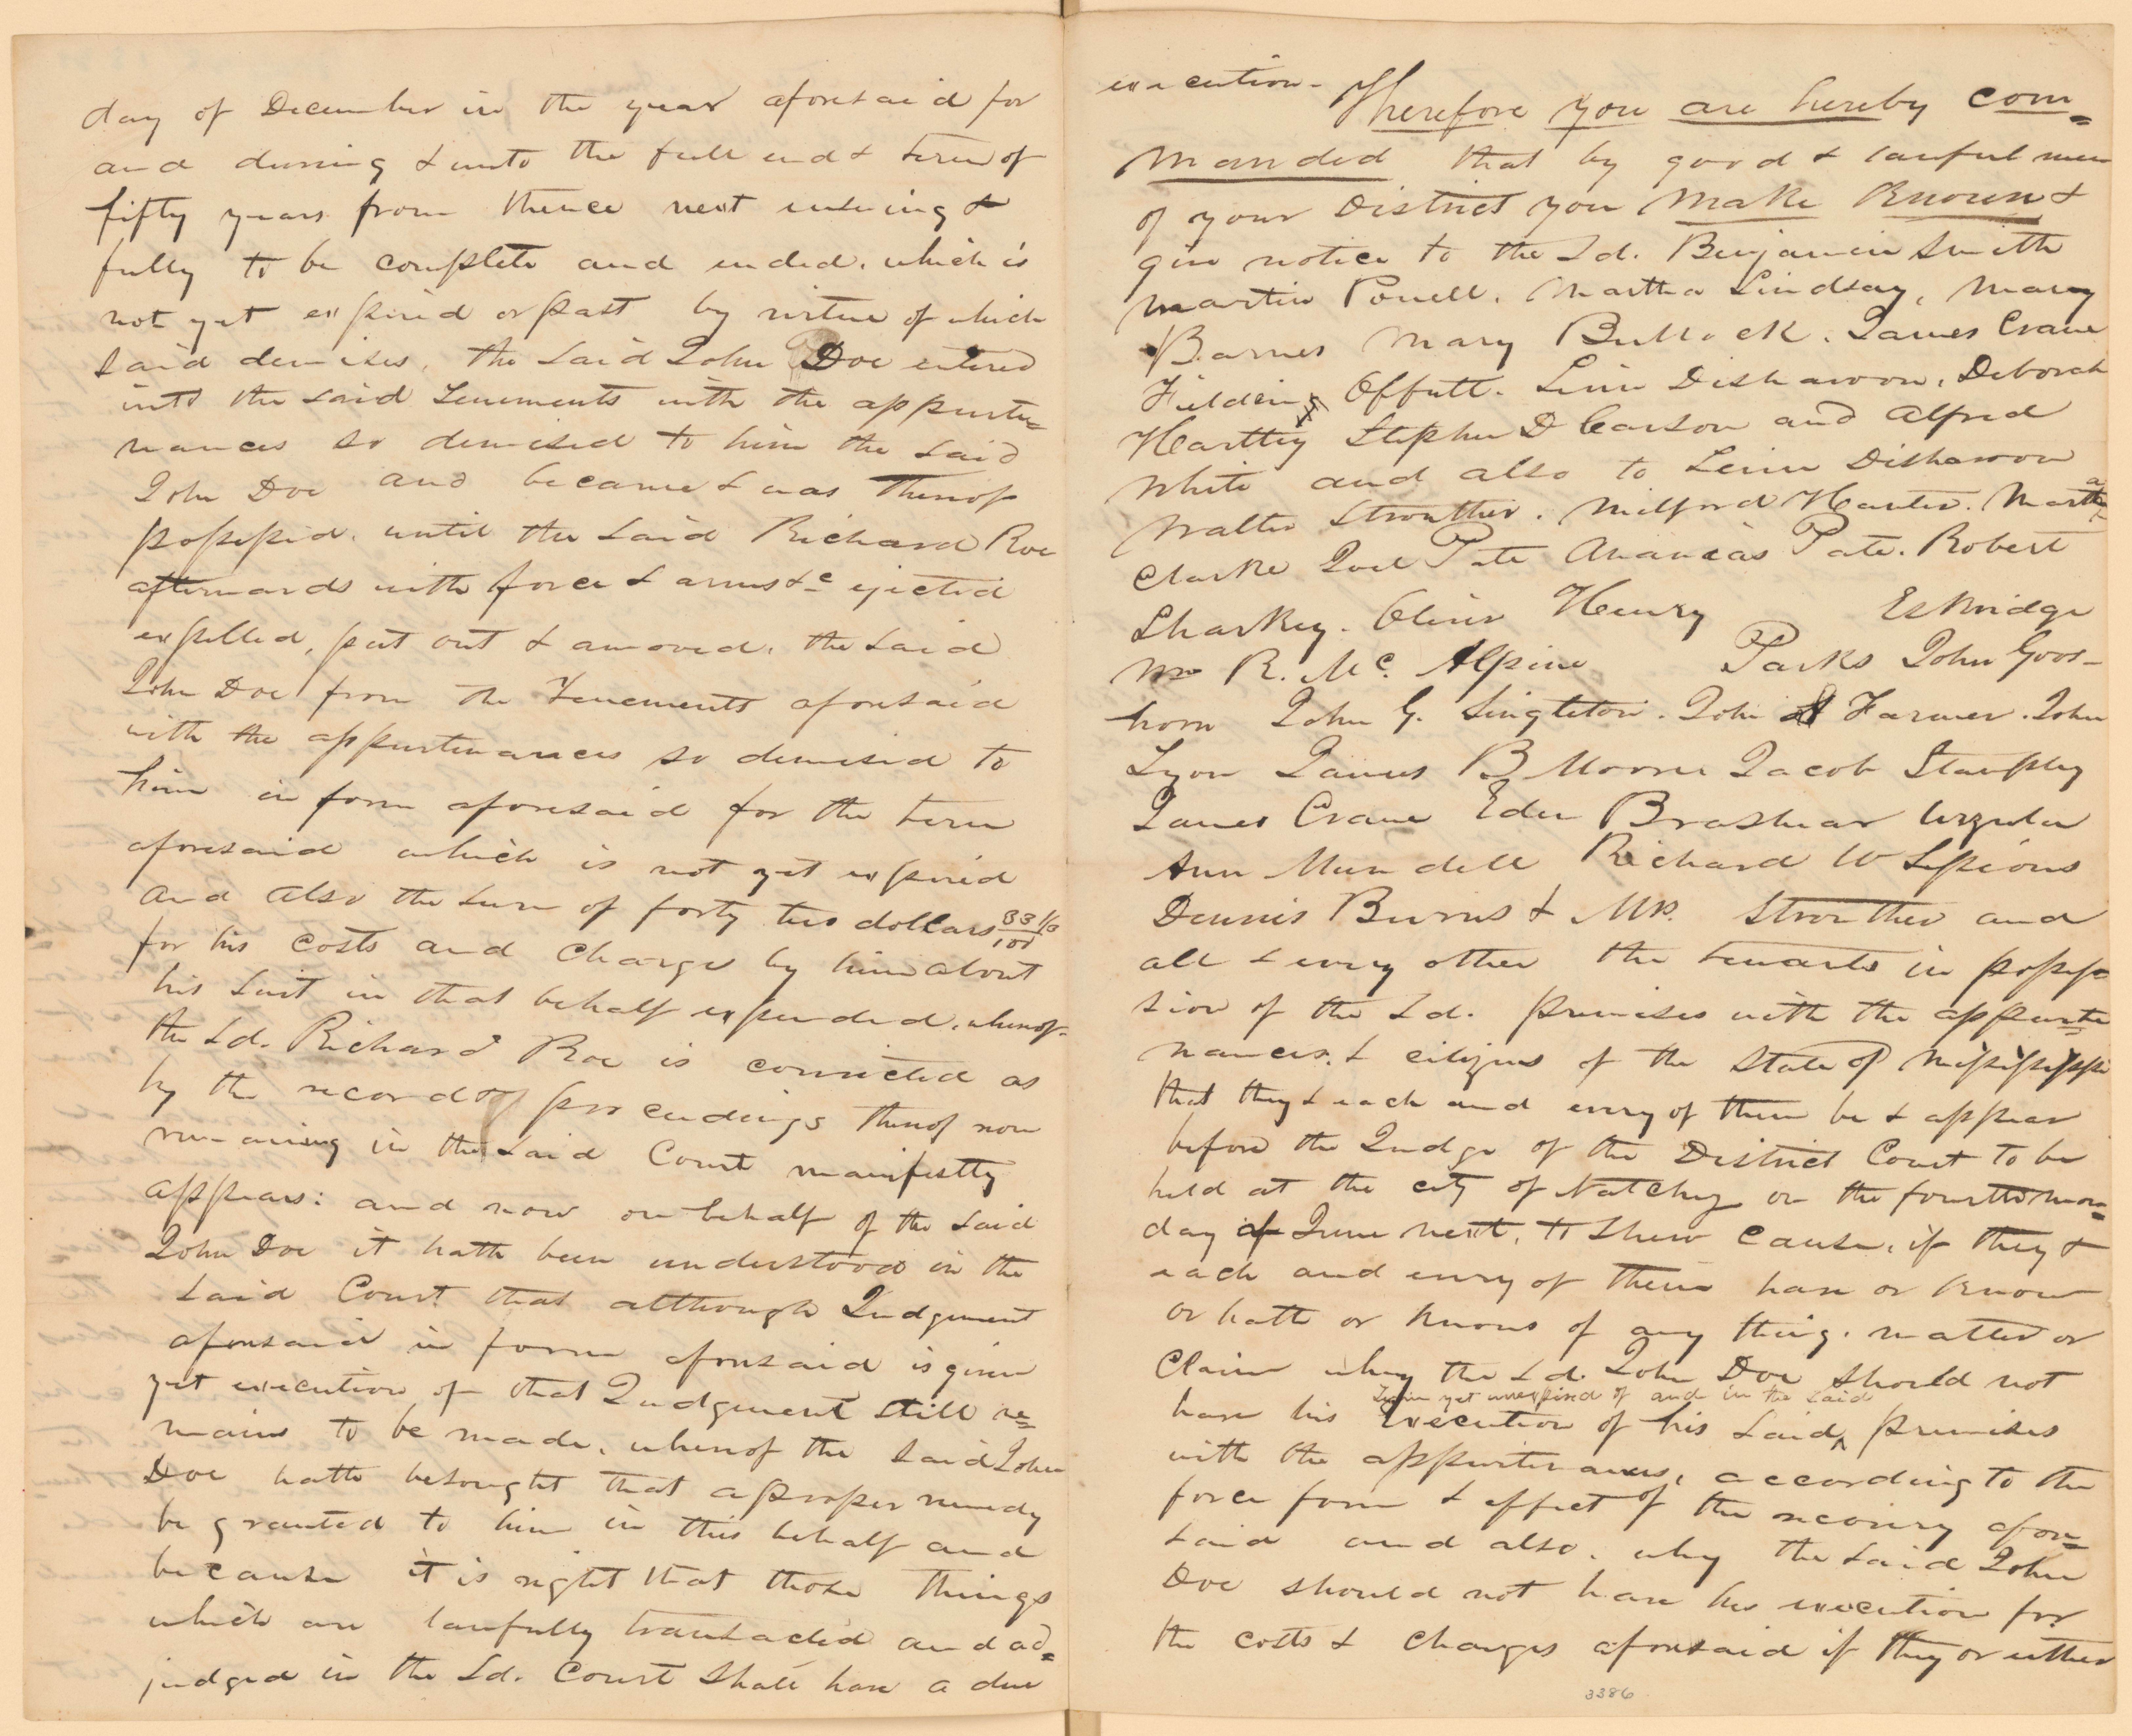 day of December in the year aforesaid for
and during & unto the full end & term of
fifty years from thence next ensuing &
fully to be complete and ended. which is
not yet expired or past by virtue of which
said demises, the said John Doe entered
into the said Tenements with the appurte=
nances so demised to him the said
John Doe and became & was thereof
possessed. until the said Richard Roe
afterwards with force & arms &c ejected
expelled, put out & amoved, the said
John Doe from the Tenements aforesaid
with the appurtenances so demised to
him in form aforesaid for the term
aforesaid which is not yet expired
and also the sum of forty two dollars 33 1/3/100
for his costs and charges by him about
his suit in that behalf expended, whereof
the sd. Richard Roe is convicted as
by the record & proceedings thereof now
remaining in the said Court manifestly
appears: and now on behalf of the said
John Doe it hath been understood in the
said Court that although Judgment
aforesaid in form aforesaid is given
yet execution of that Judgment still re=
mains to be made, whereof the said John
Doe hath besought that a proper remedy
be granted to him in this behalf and
because it is right that those things
which are lawfully transacted and ad=
judged in the sd. Court shall have a due
execution - Therefore you are hereby com=
manded that by good & lawful men
of your District you make known &
give notice to the sd. Benjamin Smith
Martin Powell. Martha Lindsay, Mary
Barnes Mary Bullock. James Crane
Fielding Offutt. Levin Disharoon, Deborah
Hartley Stephen D Carson and Alfred
White and also to Levin Disharoon
Walter Strouther. Milford Hunter. Martha
Clarke Joel Pate Ananias Pate. Robert
Sharkey. Oliver Henry Eskridge
Wm R. Mc. Alpine Parks John Goos-
horn John G. Singleton. John Farmer. John
Lyon James B Moorer Jacob Stampley
James Crane Eden Brashear Urzula
Ann Mundell Richard W Sessions
Dennis Burns & Mrs. Strouther and
all & every other the tenants in posses
sion of the sd. premises with the appurte
nances, & citizens of the State of Mississippi
that they & each and every of them be & appear
before the Judge of the District Court to be
held at the city of Natchez on the fourth mon=
day of June next, to shew cause, if they &
each and every of them have or know
or hath or knows of any thing, matter or
claim why the sd. John Doe should not
Term yet unexpired of and in the said
have his execution of his said ^ premises
with the appurtenances, according to the
force form & effect of the recovery afore=
said and also, why the said John
Doe should not have his execution for
the costs & charges aforesaid if they or either
3386